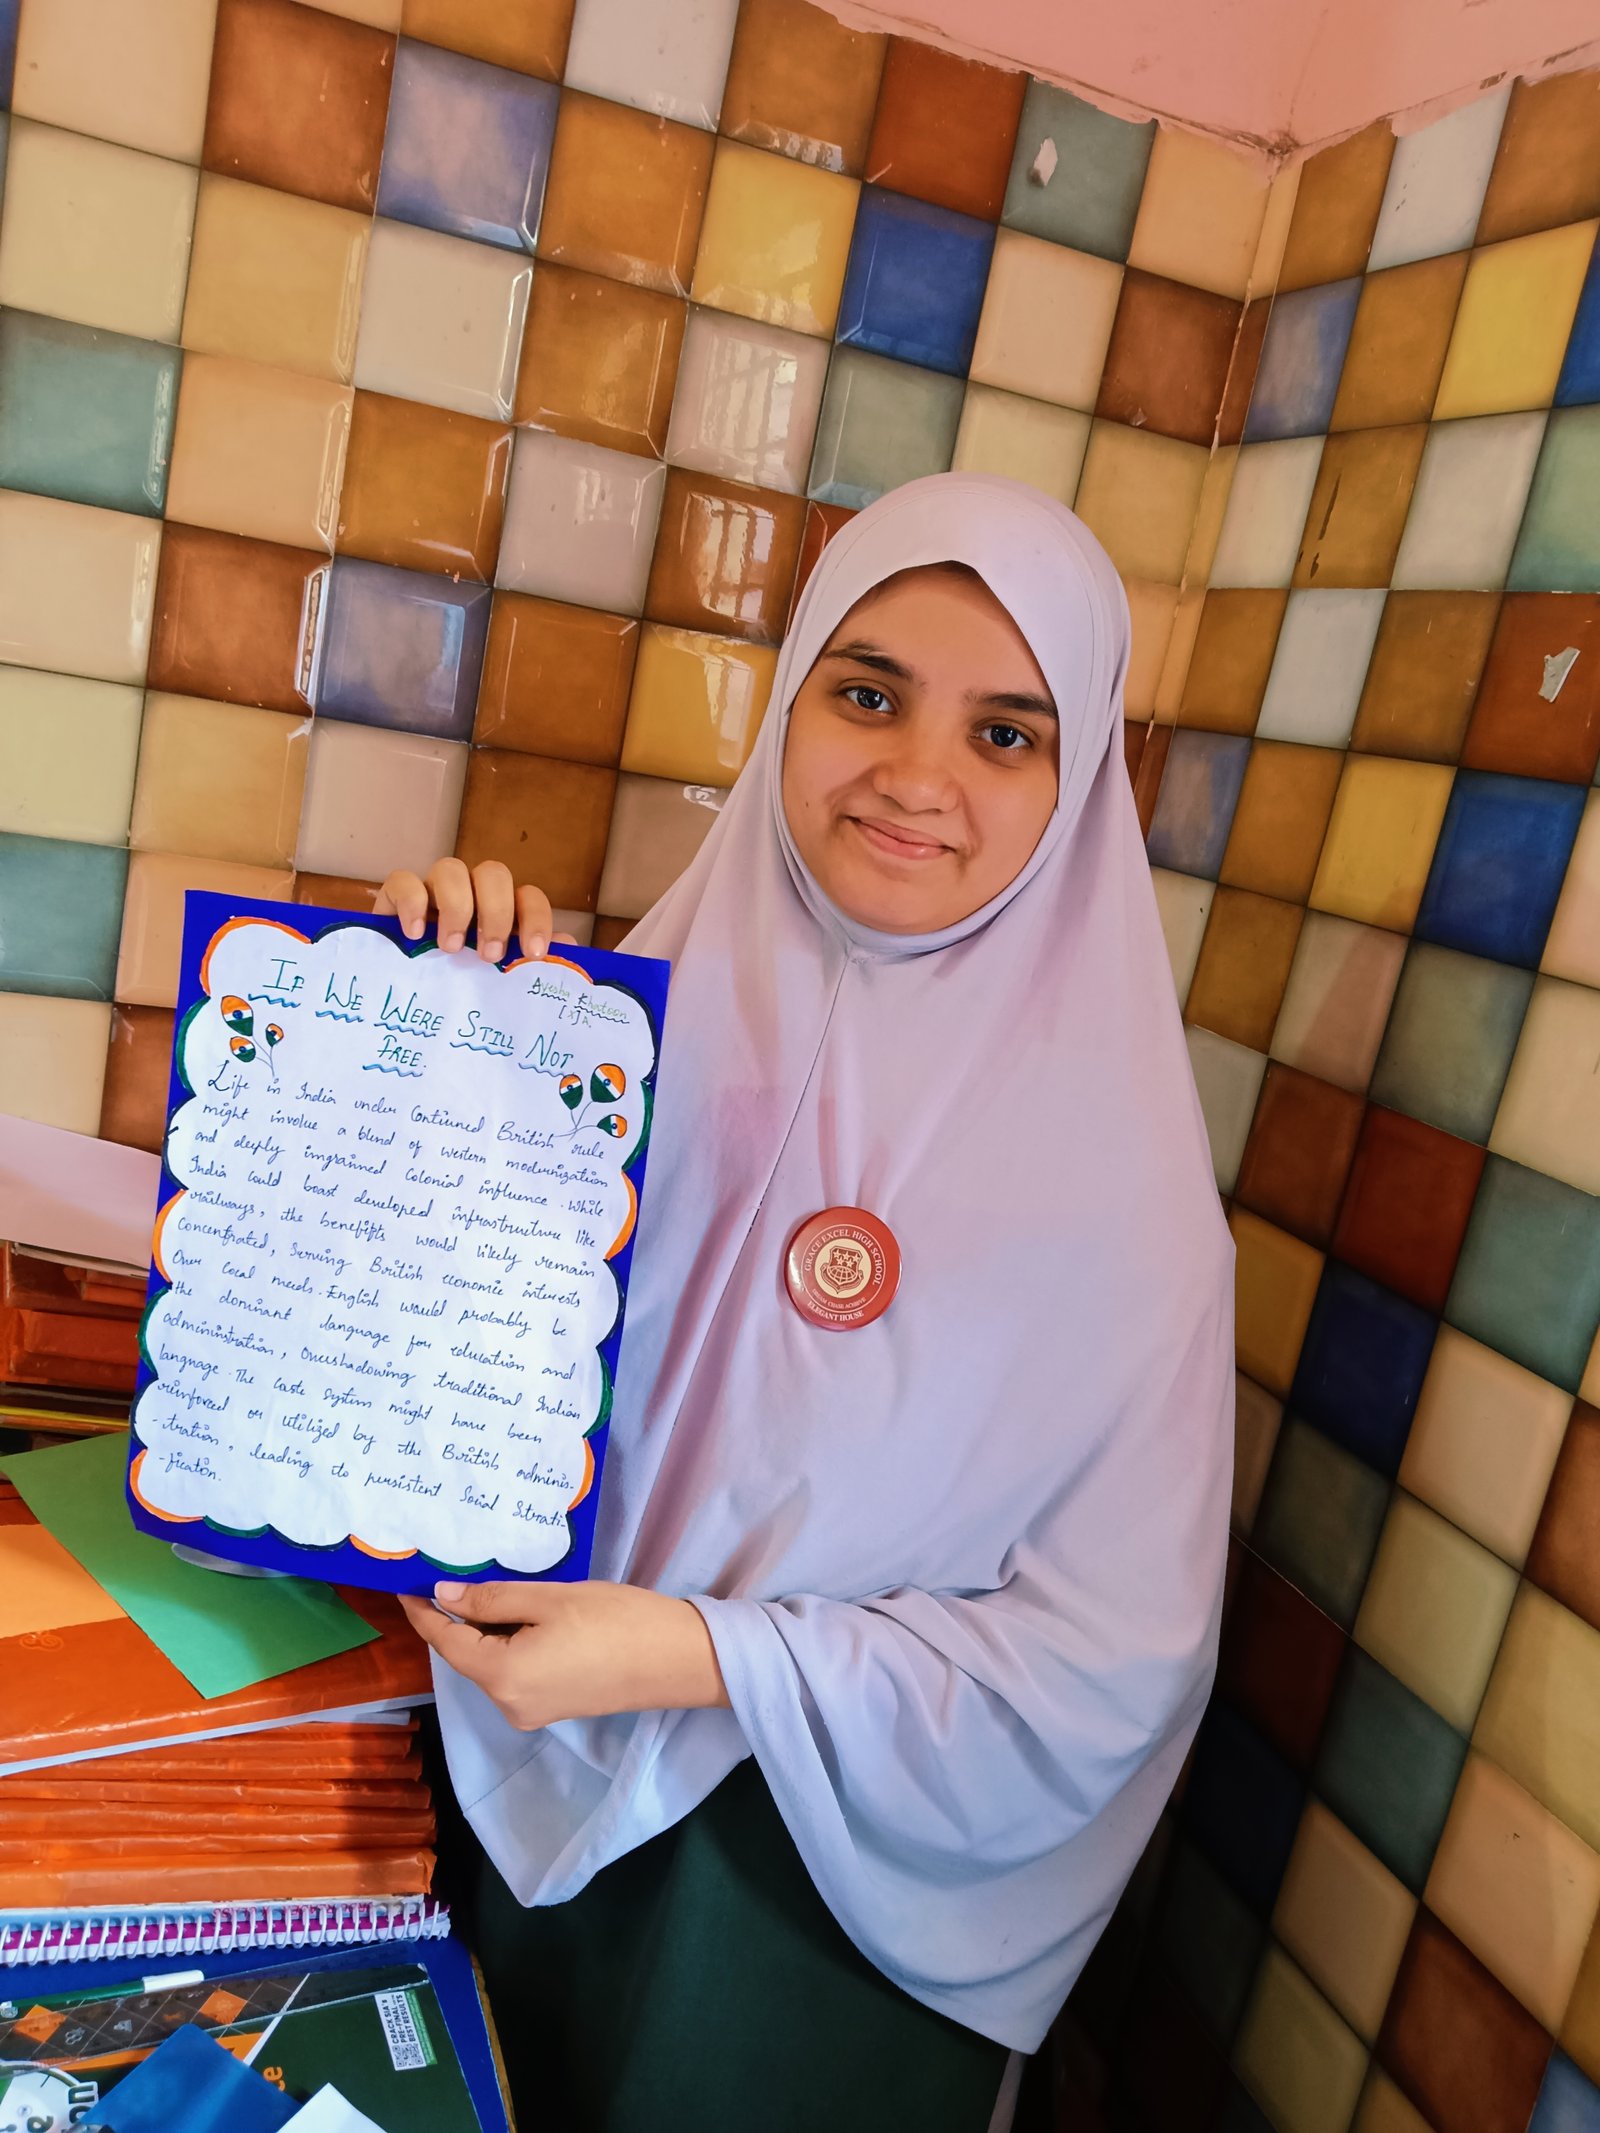 Ayesha Khatoon
[X] A.
IF WE WERE STILL NOT
FREE.
Life in India under Contiuned British rule
might involue a blend of western modernization
and deeply imgranned Colonial influence. While
India could boast developed infrastructure like
railways, the benefifts would likely remain
Concentrated, Serving British economic interests
Over local needs. English would probably be
the dominant language for education and
administration, Overshadowing traditional Indian
language. The caste system might have been
reinforced or utilized by the British adminis-
-tration, leading to persistent Social Strati-
-ficaton.
GRACE EXCEL HIGH SCHOOL
DREAM CHASE ACHIEVE
ELEGANT HOUSE
CRACK SIA's
PRE-FINAL
BEST RESULTS